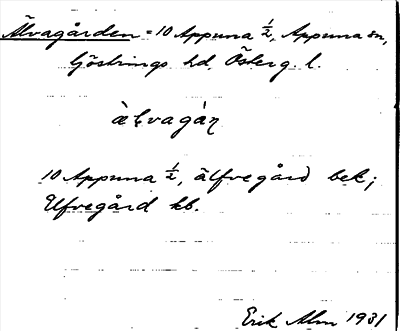 Älvagården = 10 Appuna ½, Appuna sn,
Göstrings hd, Österg. l.
älvagår
10 Appuna ½, älfvegård bek;
Elfvegård kb.
Erik Alm 1931